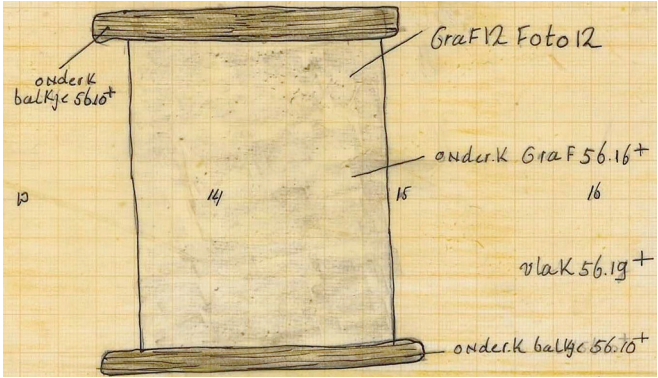 Graf 12 Foto 12
onder.K
balkje 56.10+
onder.K Graf 56.16+
13 14 15 16
vlak 56.19+
onder.K balkje 56.10+